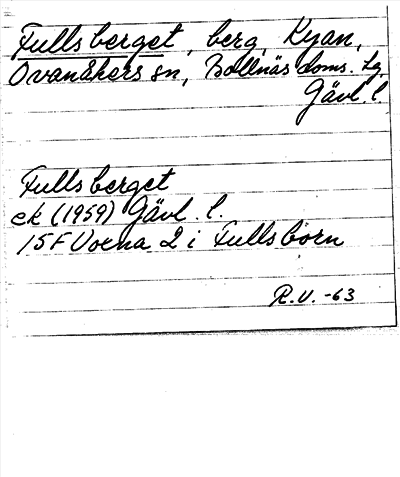 Fullsberget, berg, Ryan,
Ovanåkers sn, Bollnäs doms. tg,
Gävl. l.
Fullsberget
ek (1959) Gävl. l.
15F Voxna 2 i Fullsborn
R.V. -63